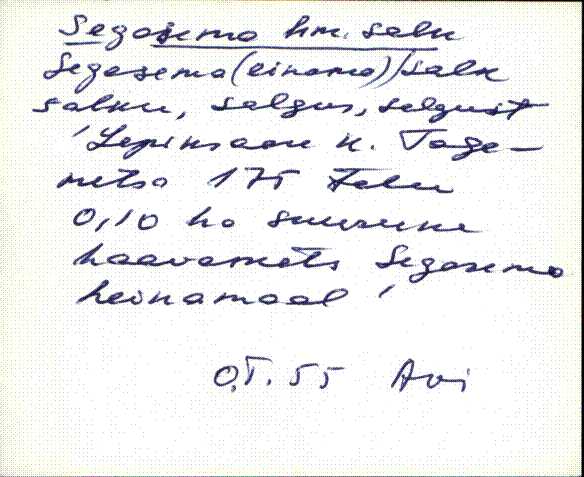 Segasema hm. salu
Segasema (einama)/salk
salku, salgus, salgust
'Lepiksaare k. Tage-
metsa 175 talu
0,10 ha suurune
haavamets Segasema
heinamaal'
O.T. 55 Avi